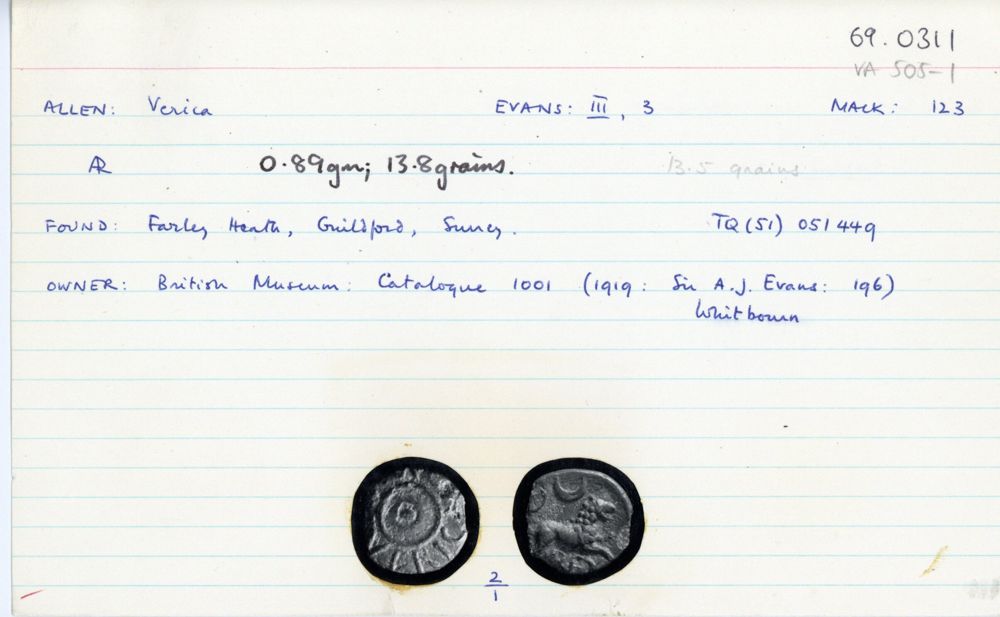 69.0311
VA 505-1
ALLEN: Verica EVANS: III, 3 MACK: 123
AR 0.89gm; 13.8grains. 13.5 grains
FOUND: Farley Heath, Guildford, Surrey. TQ(51) 051449
OWNER: British Museum: Catalogue 1001 (1919: Sir A.J. Evans: 196)
Whitbourn
2
1